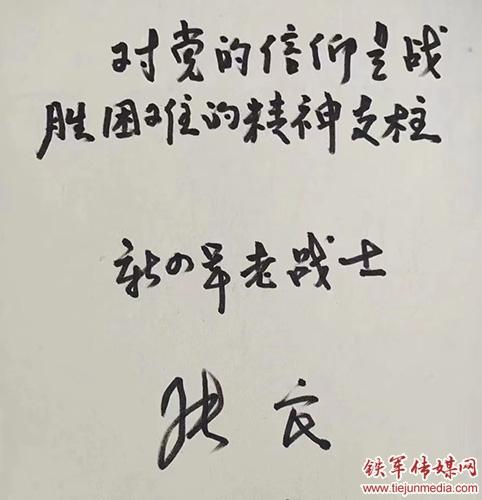 对党的信仰是战
胜困难的精神支柱
新四军老战士
铁军传媒网
www.tiejunmedia.com